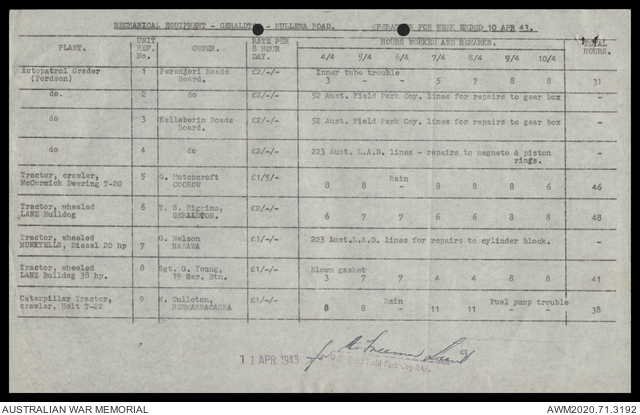 MECHANICAL EQUIPMENT - GERALDTON - MULLEWA ROAD. OPERATION FOR WEEK ENDED 10 APR 43.
PLANT. UNIT REF. No. OWNER. RATE PER 8 HOUR DAY. HOURS WORKED AND REMARKS. TOTAL HOURS.
4/4 5/4 6/4 7/4 8/4 9/4 10/4
Autopatrol Grader 1 Perenjori Roads £2/-/- Inner tube trouble
(Fordson) Board. 3 - - 5 7 8 8 31
do. 2 do £2/-/- 52 Aust. Field Park Coy. lines for repairs to gear box -
do 3 Kelleberin Roads £2/-/- 52 Aust. Field Park Coy. lines for repairs to gear box -
Board.
do 4 do £2/-/- 223 Aust. L.A.D. lines - repairs to magneto & piston -
rings.
Tractor, crawler, 5 G. Hutchcroft £1/5/- Rain
McCormick Deering T-20 COOROW 8 8 - 8 8 8 6 46
Tractor, wheeled 6 T. S. Higgins, £2/-/-
LANZ Bulldog GERALDTON. 6 7 7 6 6 8 8 48
Tractor, wheeled G. Nelson £1/-/- 223 Aust.L.A.D. lines for repairs to cylinder block. -
MUNKTELLS, Diesel 20 hp 7 NABAWA
Tractor, wheeled 8 Sgt. G. Young, £1/-/- Blown gasket
LANZ Bulldog 38 hp. 19 Gar. Btn. 3 7 7 4 4 8 8 41
Caterpillar Tractor, 9 Culloton, £1/-/- Rain Fuel pump trouble
crawler, Holt T-22 8 8 - 11 11 - - 38
11 APR 1943 for
Field Park Coy RAE
AUSTRALIAN WAR MEMORIAL AWM2020.71.3192